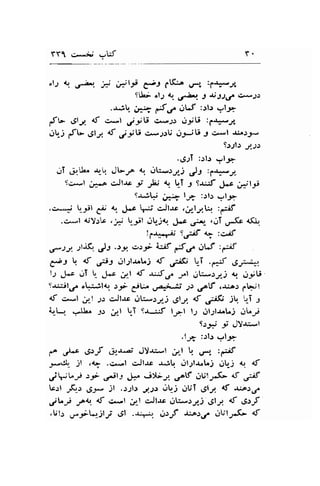 ۳۰ کتاب نخست ۳۳۹
پرسیدم: پس هنگام وضع قوانین نیز بعضی به راه
درست می‌روند و بعضی به راه خطا؟
جواب داد: گمان می‌کنم چنین باشد.
پرسیدم: قانون درست قانونی است که برای حاکم
سودمند است و قانون نادرست قانونی که برای حاکم زیان
دارد؟
جواب داد: آری.
پرسیدم: ولی زیردستان به هرحال باید مطابق آن
قوانین عمل کنند؟ و آیا به نظر تو عدالت همین است؟
جواب داد: چرا چنین نباشد؟
گفتم: بنابراین، عدالت تنها عمل به نفع اقویا نیست،
بلکه عکس آن، یعنی عمل به‌زیان اقویا نیز، عادلانه است.
گفت: چه گفتی؟ نفهمیدم!
گفتم: گمان می‌کنم گفتهٔ خودت بود. ولی بگذار بررسی
بیشتری کنیم. آیا نگفتی که زمامداران وقتی که به وضع
قانون به زیردستان امر می‌کنند که این عمل یا آن عمل را
انجام دهند، در تشخیص منافع خود گاهی به‌اشتباه می‌افتند؟
و آیا باز نگفتی که برای زیردستان عدالت در این است که
فرمان زمامداران را اجرا کنند؟ آیا این دو مطلب بنا به
استدلال تو نبود؟
گفت: چرا.
گفتم: پس با این استدلال تصدیق کردی عملی هم
که به زیان زمامداران باشد عدالت است. چه، از یک‌سو
گفتی که حکمرانان گاهی برخلاف میل و اقوای خود فرمانهایی
می‌دهند که برای آنان زیان دربر دارد. از سوی دیگر ادعا
کردی که برای زیردستان عدالت این است که به‌هر فرمانی
که حکمرانان می‌دهند گردن بنهند. ای تراسیماخوس دانا،